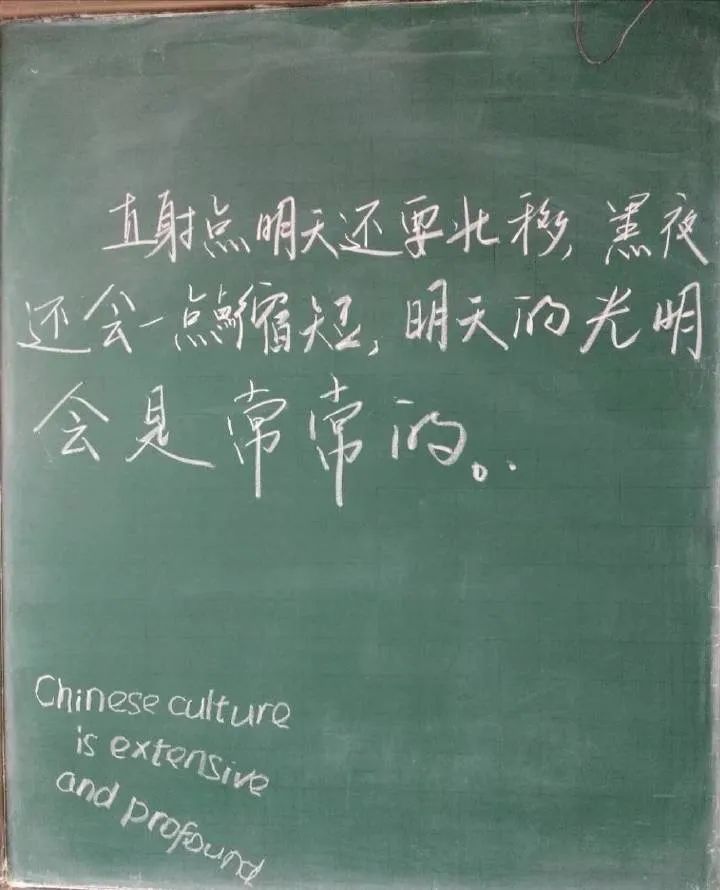 直射点明天还要北移,黑夜
还会一点点缩短,明天的光明
会是常常的。
Chinese culture
is extensive
and profound